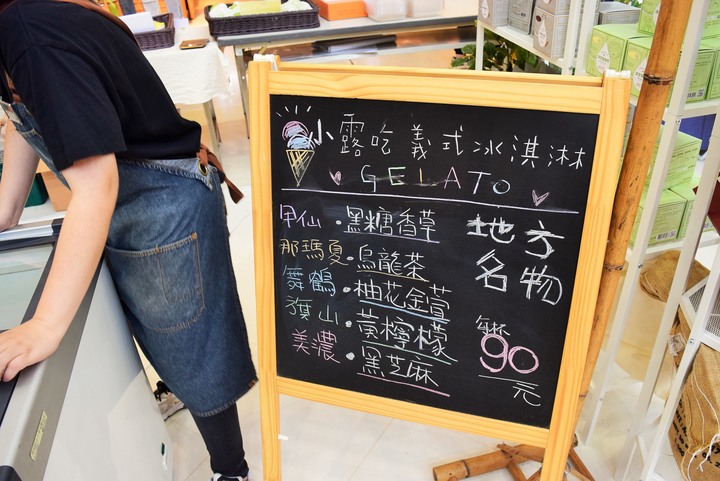 小露吃義式冰淇淋
GELATO
甲仙・黑糖香草
那瑪夏・烏龍茶
舞鶴・柚花金萱
旗山・黃檸檬
美濃・黑芝麻
地方
名物
每杯
90
元